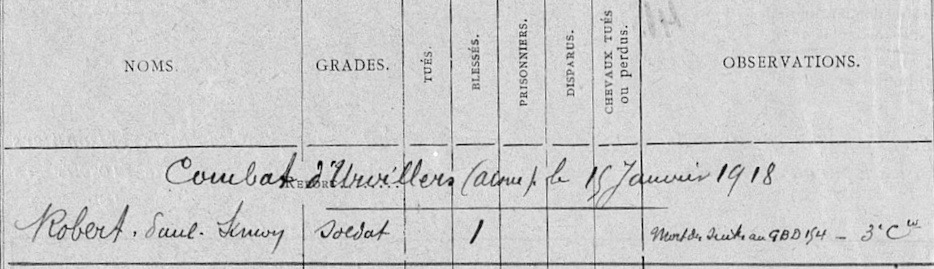 NOMS. GRADES. TUÉS. BLESSÉS. PRISONNIERS. DISPARUS. CHEVAUX TUÉS ou perdus. OBSERVATIONS.
Combat d'Urvillers (aisne) le 15 Janvier 1918
Robert. Paul. soldat 1 Mort des suites au GBD 154 – 3e Cie